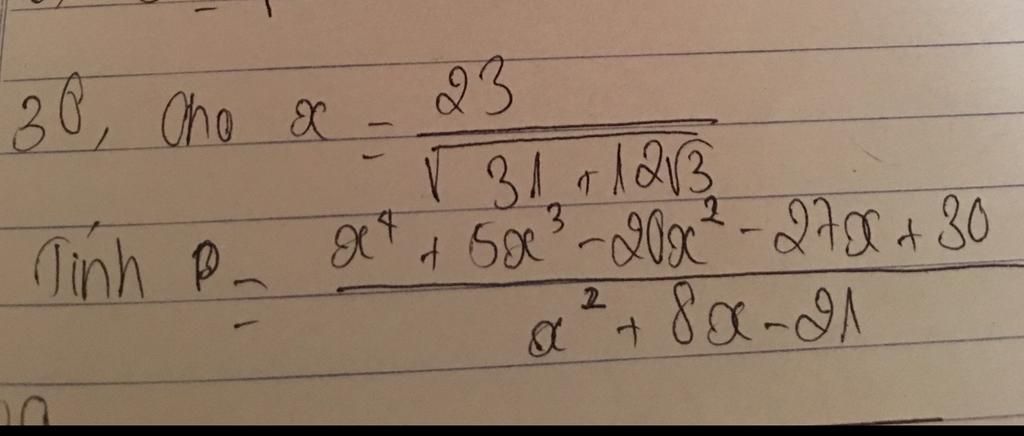 38, Cho x = 23 / √(31 + 12√3)
Tính P = (x⁴ + 5x³ - 20x² - 27x + 30) / (x² + 8x - 21)